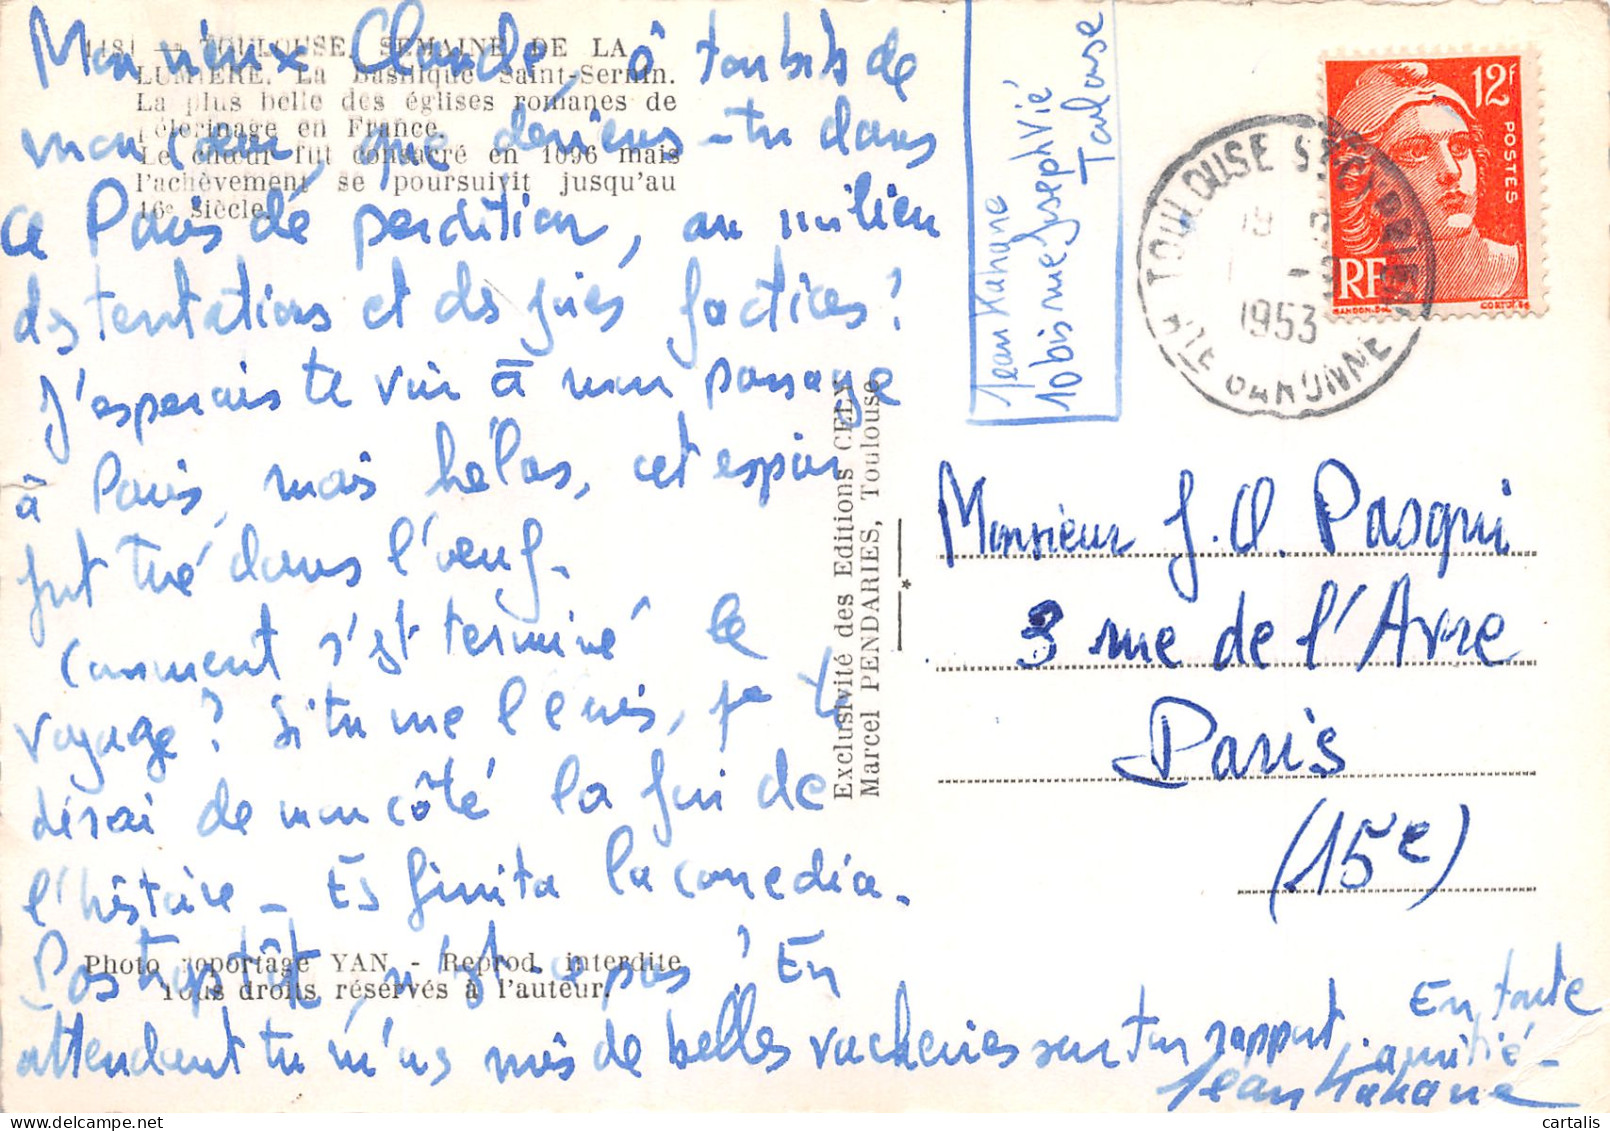 1181 — TOULOUSE. SEMAINE DE LA
LUMIERE. La Basilique Saint-Sernin.
La plus belle des églises romanes de
pèlerinage en France.
Le chœur fut consacré en 1096 mais
l'achèvement se poursuivit jusqu'au
16e siècle.
Mon vieux Claude, ô tombits de
mon cœur, que deviens-tu dans
ce Paris de perdition, au milieu
des tentations et des joies factices?
J'esperais te voir à mon passage
à Paris, mais hélas, cet espoir
fut tué dans l'oeuf.
Comment s'est terminé le
voyage? Si tu me l'écris, je te
dirai de mon côté la fin de
l'histoire - Es finita la comedia.
Pas trop tôt, n'est-ce pas? En
attendant tu m'as mis de belles vacheries sur ton rapport. En toute
amitié-
Jean Kahane
Photo reportage YAN - Reprod. interdite
Tous droits réservés à l'auteur.
Exclusivité des Editions CELY
Marcel PENDARIES, Toulouse
Jean Kahane
10bis rue Joseph Vié
Toulouse
12F
POSTES
RF
GANDON-DEL
CORTOT-SC
TOULOUSE
19
1953
Hte GARONNE
Monsieur J.C. Pasqui
3 rue de l'Avre
Paris
(15e)
cartalis